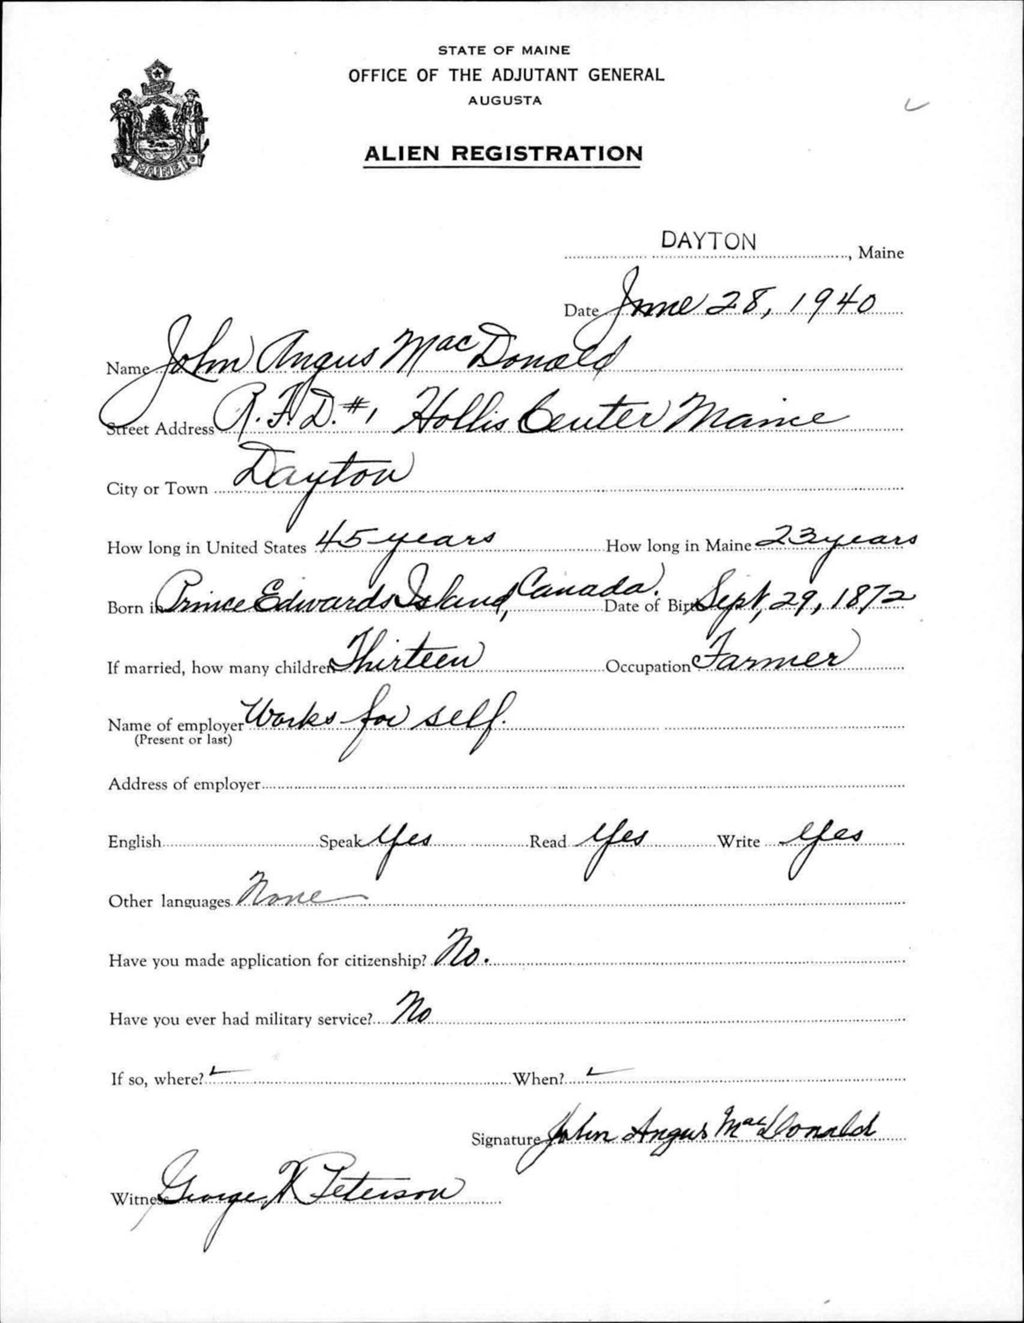 STATE OF MAINE
OFFICE OF THE ADJUTANT GENERAL
AUGUSTA
ALIEN REGISTRATION
MAINE
DAYTON, Maine
Date June 28, 1940
Name John Angus MacDonald
Street Address R.F.D. #1 Hollis Center Maine
City or Town Dayton
How long in United States 45 years How long in Maine 23 years
Born in Prince Edwards Island, Canada. Date of Birth Sept, 29, 1872
If married, how many children Thirteen Occupation Farmer
Name of employer Works for self.
(Present or last)
Address of employer
English Speak Yes Read Yes Write Yes
Other languages None
Have you made application for citizenship? No.
Have you ever had military service? No
If so, where? When?
Signature John Angus MacDonald
Witness George K Peterson